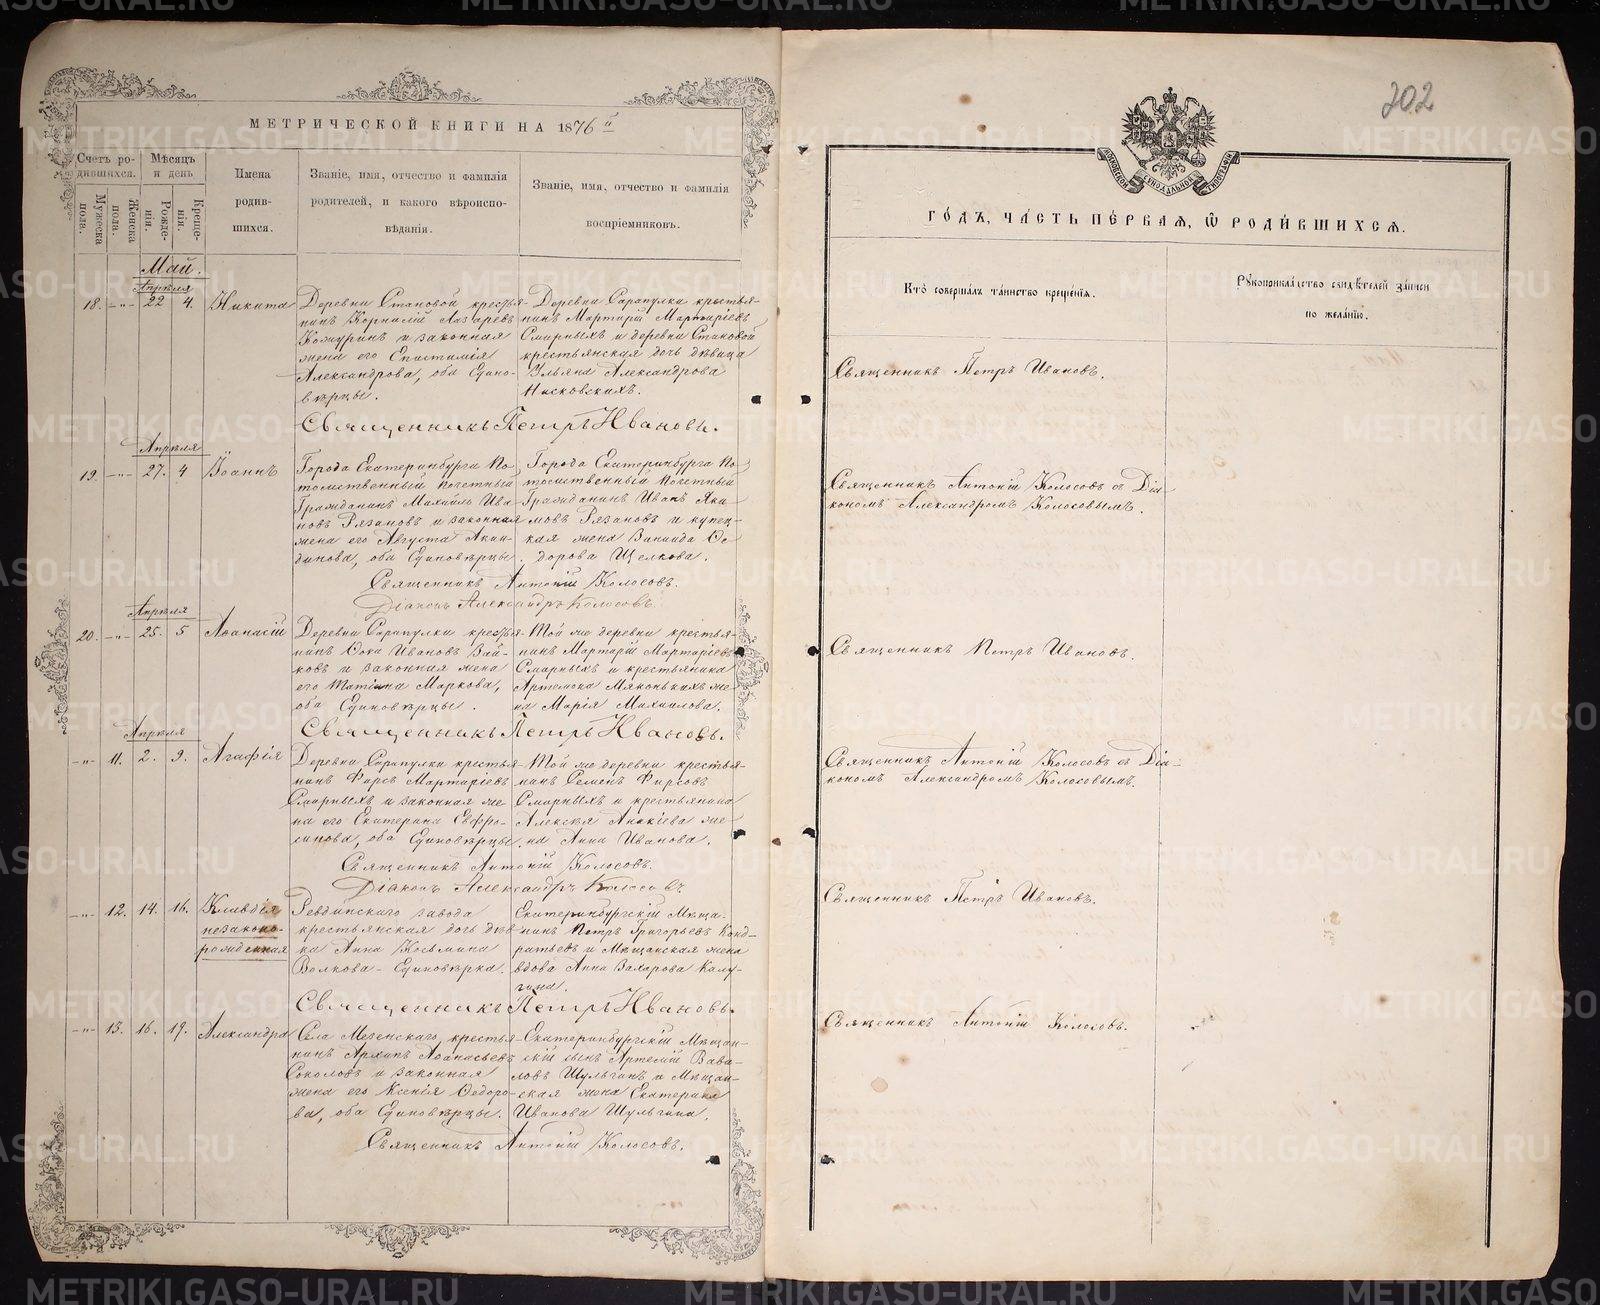 202
МЕТРИЧЕСКОЙ КНИГИ НА 1876й
Счетъ ро-
дившихся.
Мѣсяцъ
и день
Имена
родив-
шихся.
Званіе, имя, отчество и фамилія
родителей, и какого вѣроиспо-
вѣданія.
Званіе, имя, отчество и фамилія
воспріемниковъ.
Мужеска
пола.
Женска
пола.
Рожде-
нія.
Креще-
нія.
Май.
Апрѣля
18. -"- 22 4. Никита
Деревни Становой крестья-
нинъ Корнилій Лазаревъ
Кожуринъ и законная
жена его Епистимія
Александрова, оба Едино-
вѣрцы.
Деревни Сарапулки крестья-
нинъ Мартирій Мартиріевъ
Смирныхъ и деревни Становой
крестьянская дочь дѣвица
Ульяна Александрова
Московскихъ.
Священникъ Петръ Ивановъ.
Апрѣля
19. -"- 27. 4 Іоаннъ
Города Екатеринбурга По-
томственный почетный
Гражданинъ Михаилъ Ива-
новъ Рязановъ и законная
жена его Августа Акин-
динова, оба Единовѣрцы.
Города Екатеринбурга По-
томственный почетный
Гражданинъ Иванъ Яки-
мовъ Рязановъ и купец-
кая жена Зинаида Ѳе-
дорова Щелкова.
Священникъ Антоній Колосовъ.
Діаконъ Александръ Колосовъ.
Апрѣля
20. -"- 25. 5 Аѳанасій
Деревни Сарапулки крестья-
нинъ Ѳока Ивановъ Зай-
ковъ и законная жена
его Татіана Маркова,
оба Единовѣрцы.
Той же деревни крестья-
нинъ Мартирій Мартиріевъ
Смирныхъ и крестьянина
Артемона Мяконькихъ же-
на Марія Михаилова.
Священникъ Петръ Ивановъ.
Апрѣля
-"- 11. 2. 9. Агафія
Деревни Сарапулки крестья-
нинъ Фирсъ Мартиріевъ
Смирныхъ и законная же-
на его Екатерина Евфро-
синова, оба Единовѣрцы.
Той же деревни крестья-
нинъ Семенъ Фирсовъ
Смирныхъ и крестьянина
Алексѣя Аникіева же-
на Анна Иванова.
Священникъ Антоній Колосовъ.
Діаконъ Александръ Колосовъ
-"- 12. 14. 16. Клавдія
незаконо-
рожденная
Ревдинскаго завода
крестьянская дочь дѣв-
ка Анна Косьмина
Волкова - Единовѣрка.
Екатеринбургскій Мѣща-
нинъ Петръ Григорьевъ Конд-
ратьевъ и Мѣщанская жена
вдова Анна Захарова Калу-
гина.
Священникъ Петръ Ивановъ.
-"- 13. 16. 19. Александра
Села Мезенскаго крестья-
нинъ Архипъ Аѳанасьевъ
Соколовъ и законная
жена его Ксенія Ѳедоро-
ва, оба Единовѣрцы.
Екатеринбургскій Мѣщан-
скій сынъ Артемій Вави-
ловъ Шульгинъ и Мѣщан-
ская жена Екатерина
Иванова Шульгина.
Священникъ Антоній Колосовъ.
МОСКОВСКОЙ СѴНОДАЛЬНОЙ ТИПОГРАФІИ
ГО́ДЪ, ЧА́СТЬ ПЕ́РВАЯ, Ѽ РОДИ́ВШИХСЯ.
Кто̀ совершалъ та́инство креще́нія.
Рꙋкоприкла́дство свидѣ́телей за́писи
по жела́нію.
Священникъ Петръ Ивановъ.
Священникъ Антоній Колосовъ съ Діа-
кономъ Александромъ Колосовымъ.
Священникъ Петръ Ивановъ.
Священникъ Антоній Колосовъ съ Діа-
кономъ Александромъ Колосовымъ.
Священникъ Петръ Ивановъ.
Священникъ Антоній Колосовъ.
METRIKI.GASO-URAL.RU